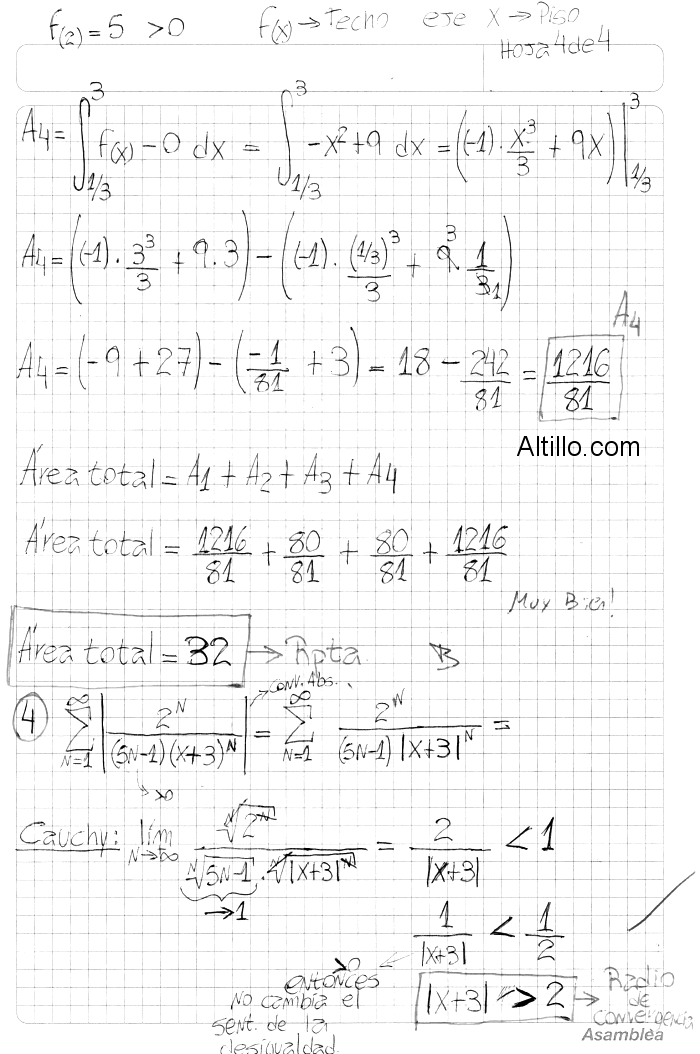 f(2) = 5 > 0 f(x) → Techo eje X → Piso
Hoja 4 de 4
A4 = ∫_{1/3}^{3} f(x) - 0 dx = ∫_{1/3}^{3} -x² + 9 dx = ((-1) · x³/3 + 9x) |_{1/3}^{3}
A4 = ((-1) · 3³/3 + 9.3) - ((-1) · (1/3)³/3 + 9³ · 1/3₁)
A4
A4 = (-9 + 27) - (-1/81 + 3) = 18 - 242/81 = 1216/81
Altillo.com
Área total = A1 + A2 + A3 + A4
Área total = 1216/81 + 80/81 + 80/81 + 1216/81
Muy Bien!
Área total = 32 → Rpta B
Conv. Abs.
4 ∑_{N=1}^{∞} |2^N/((5N-1)(x+3)^N)| = ∑_{N=1}^{∞} 2^N/((5N-1) |x+3|^N) =
>0
Cauchy: lím_{N→∞} ᴺ√2^N/(ᴺ√5N-1 · ᴺ√|x+3|^N) = 2/|x+3| < 1
→1
1/|x+3| < 1/2
>0
entonces
No cambia el
sent. de la
desigualdad.
|x+3| > 2 → Radio
de
convergencia
Asamblea